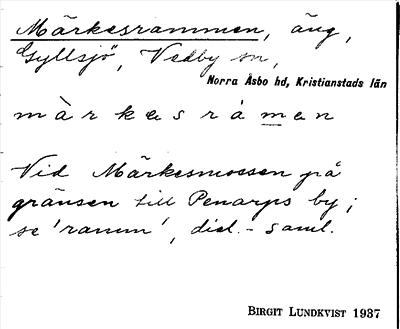 Märkesrammen, äng,
Gyllsjö, Vedby sn,
Norra Åsbo hd, Kristianstads län
mà̈rkesråmen
Vid Märkesmossen på
gränsen till Penarps by;
se 'ramm', dial.-saml.
BIRGIT LUNDKVIST 1937